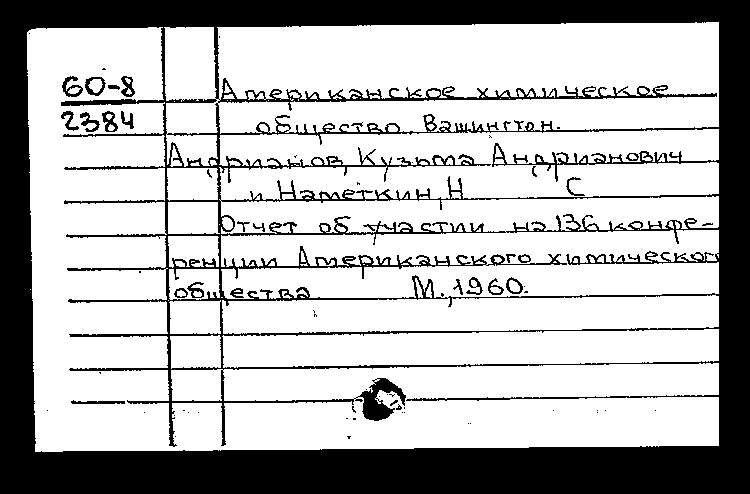 60-8 Американское химическое
2384 общество. Вашингтон.
Андрианов, Кузьма Андрианович
и Наметкин, Н С
Отчет об участии на 136 конфе-
ренции Американского химического
общества. М., 1960.